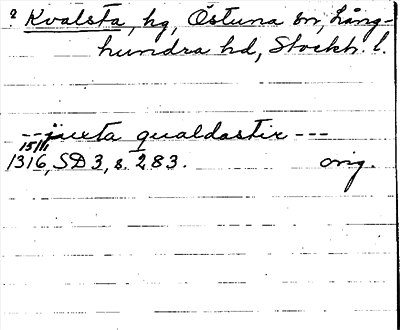 ? Kvalsta, hg, Östuna sn, Lång-
hundra hd, Stockh. l.
-- juxta qualdastir ---
15/11
1316, SD 3, s. 283. orig.